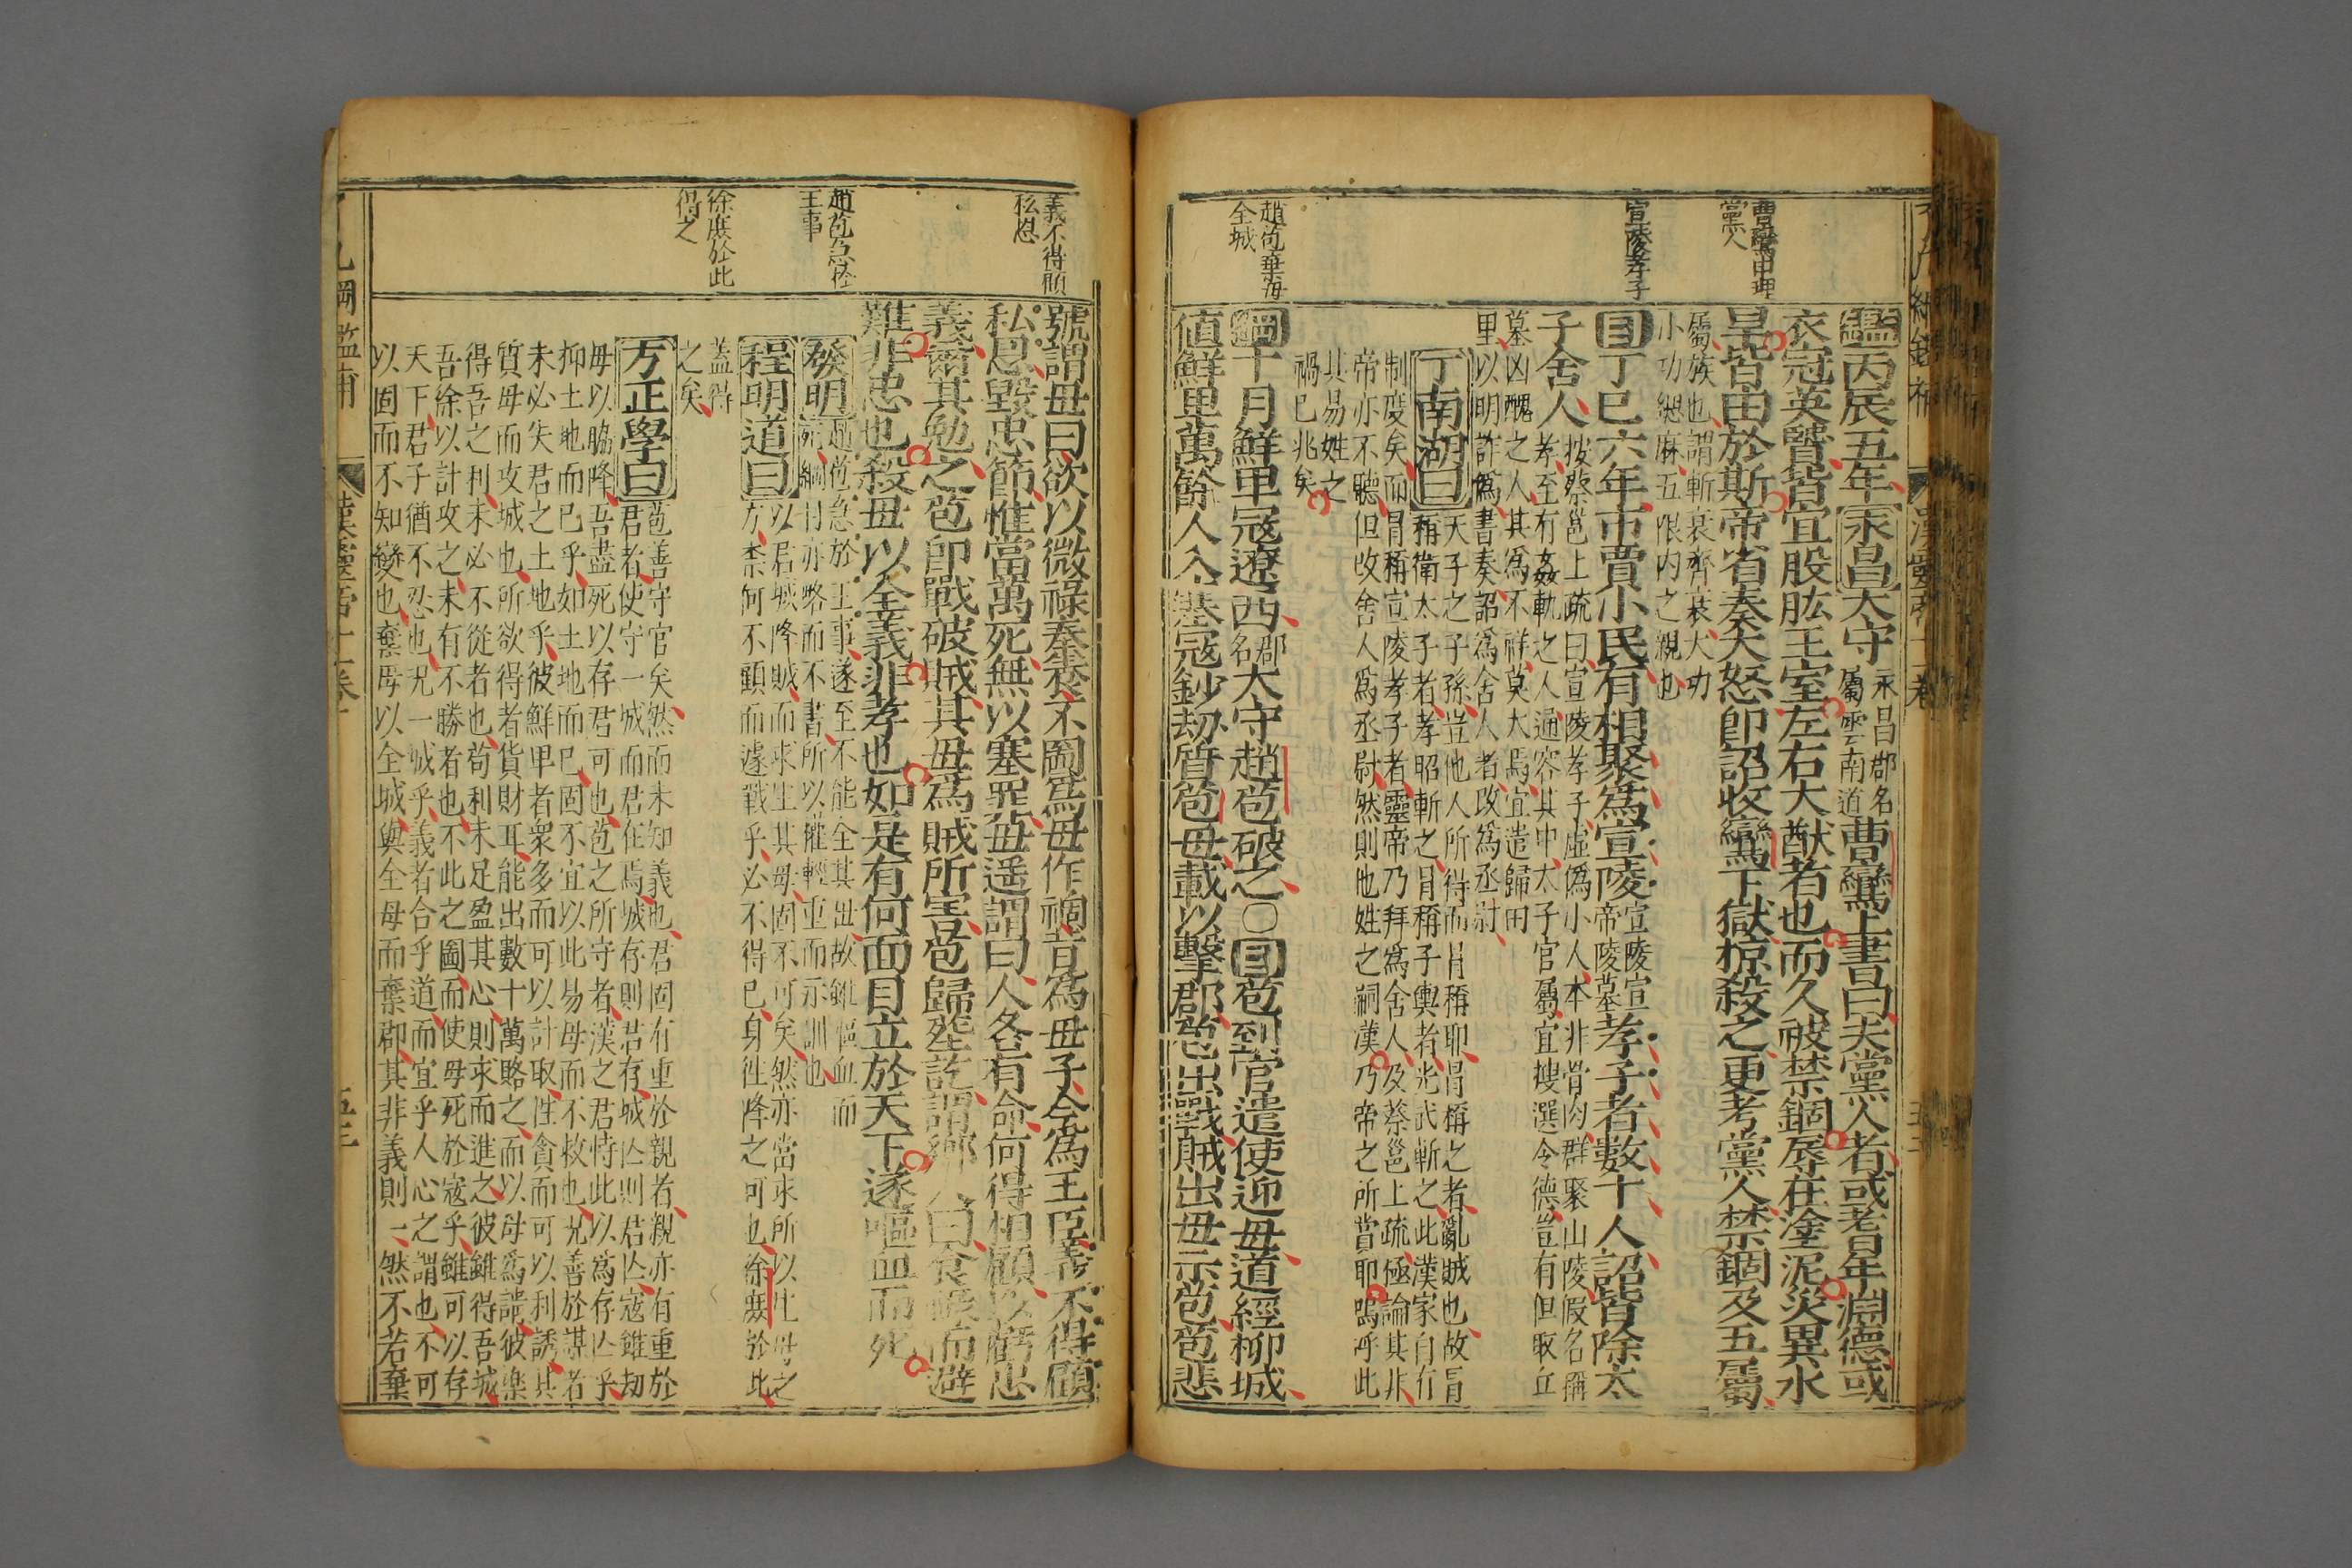 曹鸞申理
黨人
宣陵孝子
趙苞棄母
全城
鑑丙辰五年永昌太守永昌郡名
屬雲南道曹鸞上書曰夫黨人者或耆年淵德或
衣冠英賢皆宜股肱王室左右大猷者也而久被禁錮辱在塗泥災異水
旱皆由於斯帝省奏大怒卽詔收鸞下獄掠殺之更考黨人禁錮及五屬
屬族也謂斬衰齊衰大功
小功緦麻五限內之親也
目丁巳六年市賈小民有相聚爲宣陵宣陵宣
帝陵墓孝子者數十人詔皆除太
子舍人按蔡邕上疏曰宣陵孝子虛僞小人本非骨肉群聚山陵假名稱
孝至有姦軌之人通容其中太子官屬宜搜選令德豈有但取丘
墓凶醜之人其爲不祥莫大焉宜遣歸田
里以明詐僞書奏詔爲舍人者改爲丞尉
丁南湖曰天子之子孫豈他人所得而冐稱耶冐稱之者亂賊也故冐
稱衛太子者孝昭斬之冐稱子輿者光武斬之此漢家自有
制度矣而冐稱宣陵孝子者靈帝乃拜爲舍人及蔡邕上疏極論其非
帝亦不聽但收舍人爲丞尉然則他姓之嗣漢乃帝之所嘗耶嗚呼此
其易姓之
禍已兆矣
綱十月鮮卑寇遼西郡
名太守趙苞破之○目苞到官遣使迎母道經柳城
值鮮卑萬餘人入塞寇鈔劫質苞母載以擊郡苞出戰賊出母示苞苞悲
義不得顧
私恩
趙苞急於
王事
徐庶於此
得之
號謂母曰欲以微祿奉養不圖爲母作禍昔爲母子今爲王臣義不得顧
私恩毀忠節惟當萬死無以塞罪母遥謂曰人各有命何得相顧以虧忠
義爾其勉之苞卽戰破賊其母爲賊所害苞歸塟訖謂鄉人曰食祿而避
難非忠也殺母以全義非孝也如是有何面目立於天下遂嘔血而死
發明趙苞急於王事遂至不能全其母故雖嘔血而
死綱目亦略而不書所以權輕重而示訓也
程明道曰以君城降賊而求生其母固不可矣然亦當求所以生母之
方柰何不顧而遽戰乎必不得已身徃降之可也徐庶於此
蓋得
之矣
方正學曰苞善守官矣然而未知義也君固有重於親者親亦有重於
君者使守一城而君在焉城存則君存城亡則君亡寇雖劫
母以脇降吾盡死以存君可也苞之所守者漢之君恃此以爲存亡乎
抑土地而已乎如土地而已固不宜以此易母而不救也况善於謀者
未必失君之土地乎彼鮮卑者衆多而可以計取性貪而可以利誘其
質母而攻城也所欲得者貨財耳能出數十萬賂之而以母爲請彼樂
得吾之利未必不從者也苟利未足盈其心則求而進之彼雖得吾城
吾徐以計攻之未有不勝者也不此之圖而使母死於寇乎雖可以存
天下君子猶不忍也况一城乎義者合乎道而宜乎人心之謂也不可
以固而不知變也棄母以全城與全母而棄郡其非義則一然不若棄